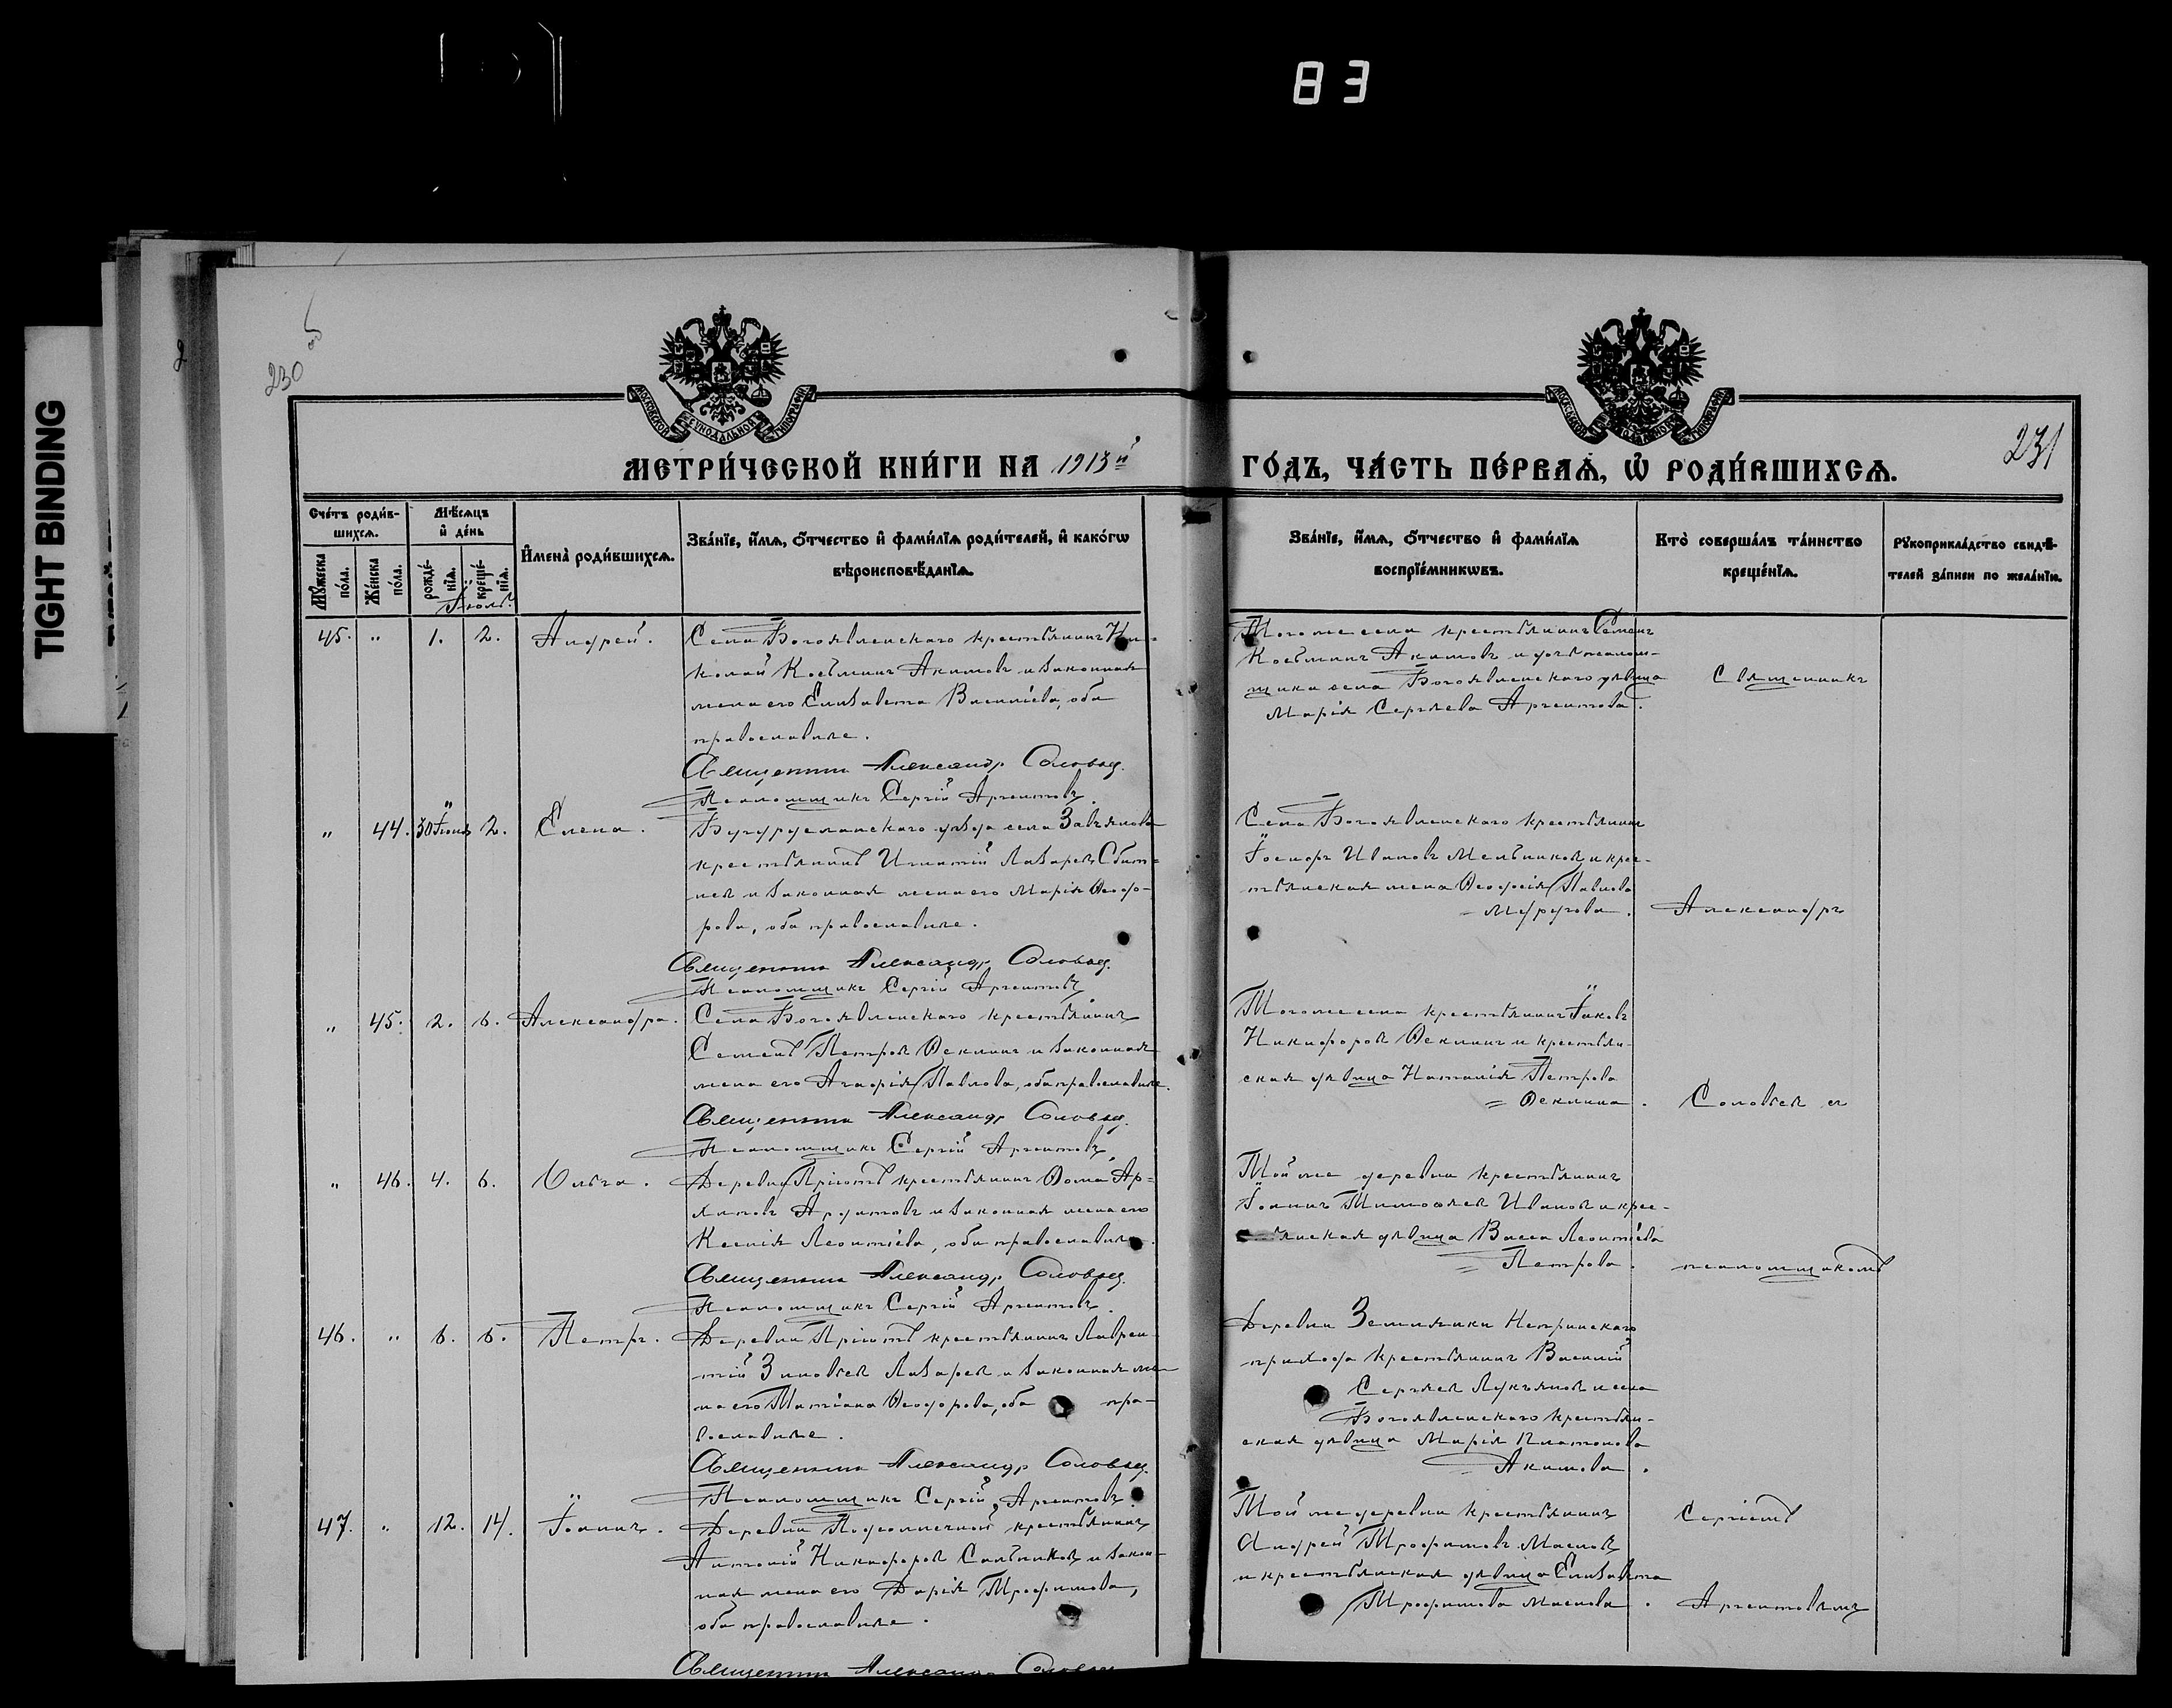 83
TIGHT BINDING
230 об
231
МОСКОВСКОЙ СѴНОДАЛЬНОЙ ТИПОГРАФІИ
МОСКОВСКОЙ СѴНОДАЛЬНОЙ ТИПОГРАФІИ
МЕТРИ́ЧЕСКОЙ КНИ́ГИ НА 1913й ГО́ДЪ, ЧА́СТЬ ПЕ́РВАѦ, Ѡ҆ РОДИ́ВШИХСѦ.
Сче́тъ роди́в-
шихсѧ.
Мѹ́жеска по́ла.
Же́нска по́ла.
Мѣ́сѧцъ
и҆ де́нь
рожде́-
нїѧ.
креще́-
нїѧ.
Іюль.
И҆мена̀ роди́вшихсѧ.
Зва́нїе, и҆́мѧ, ѻ҆́тчество и҆ фами́лїѧ роди́телей, и҆ како́гѡ
вѣроисповѣ́данїѧ.
Зва́нїе, и҆́мѧ, ѻ҆́тчество и҆ фами́лїѧ
воспрїе́мникѡвъ.
Кто̀ соверша́лъ та́инство
креще́нїѧ.
Рѹкоприкла́дство свидѣ́-
телей за́писи по жела́нїю.
45. " 1. 2. Андрей.
Села Богоявленскаго крестьянинъ Ни-
колай Косьминъ Акимовъ и законная
жена его Елизавета Василіева, оба
православные.
Священник Александр Соловьев
Псаломщикъ Сергій Аргентовъ.
Того же села крестьянинъ Семенъ
Косьминъ Акимовъ и дочь псалом-
щика села Богоявленскаго дѣвица
Марія Сергѣева Аргентова.
Священникъ
" 44. 30 Іюня 2. Елена.
Бугурусланскаго уѣзда села Завьялова
крестьянинъ Игнатій Лазаревъ Сбит-
невъ и законная жена его Марія Ѳеодо-
рова, оба православные.
Священник Александр Соловьев
Псаломщикъ Сергій Аргентовъ
Села Богоявленскаго крестьянинъ
Іосифъ Ивановъ Мельниковъ и крес-
тьянская жена Ѳеодосія Павлова
Александръ
" 45. 2. 6. Александра.
Села Богоявленскаго крестьянинъ
Семенъ Петровъ Ѳеклинъ и законная
жена его Агафія Павлова, оба православные.
Священник Александр Соловьев
Псаломщикъ Сергій Аргентовъ
Того же села крестьянинъ Іаковъ
Никифоровъ Ѳеклинъ и крестьян-
ская дѣвица Наталія Петрова
= Ѳеклина.
Соловьев съ
" 46. 4. 6. Ольга.
Деревни Пріютъ крестьянинъ Ѳома Ар-
хиповъ и законная жена его
Ксенія Леонтіева, оба православные.
Священник Александр Соловьев
Псаломщикъ Сергій Аргентовъ.
Той же деревни крестьянинъ
Іоаннъ Тимоѳеев Иванов и крес-
тьянская дѣвица Васса Леонтіева
= Петрова.
псаломщикомъ
46. " 6. 6. Петръ.
Деревни Пріютъ крестьянинъ Лаврен-
тій Зиновьев Лазарев и законная же-
на его Татіана Ѳеодорова, оба пра-
вославные.
Священник Александр Соловьев
Псаломщикъ Сергій Аргентовъ.
Деревни Землянки
прихода крестьянинъ Василій
Сергѣев Лукьянов и села
Богоявленскаго крестьян-
ская дѣвица Марія Платонова
= Акимова.
Сергіемъ
47. " 12. 14. Іоаннъ.
Деревни Подсолнечной крестьянинъ
Антоній Никифоров Сальников и закон-
ная жена его Дарія Трофимова,
оба православные.
Священник Александр Соловьев
Той же деревни крестьянинъ
Андрей Трофимовъ Маслов
и крестьянская дѣвица Елизавета
Трофимова Маслова.
Аргентовымъ